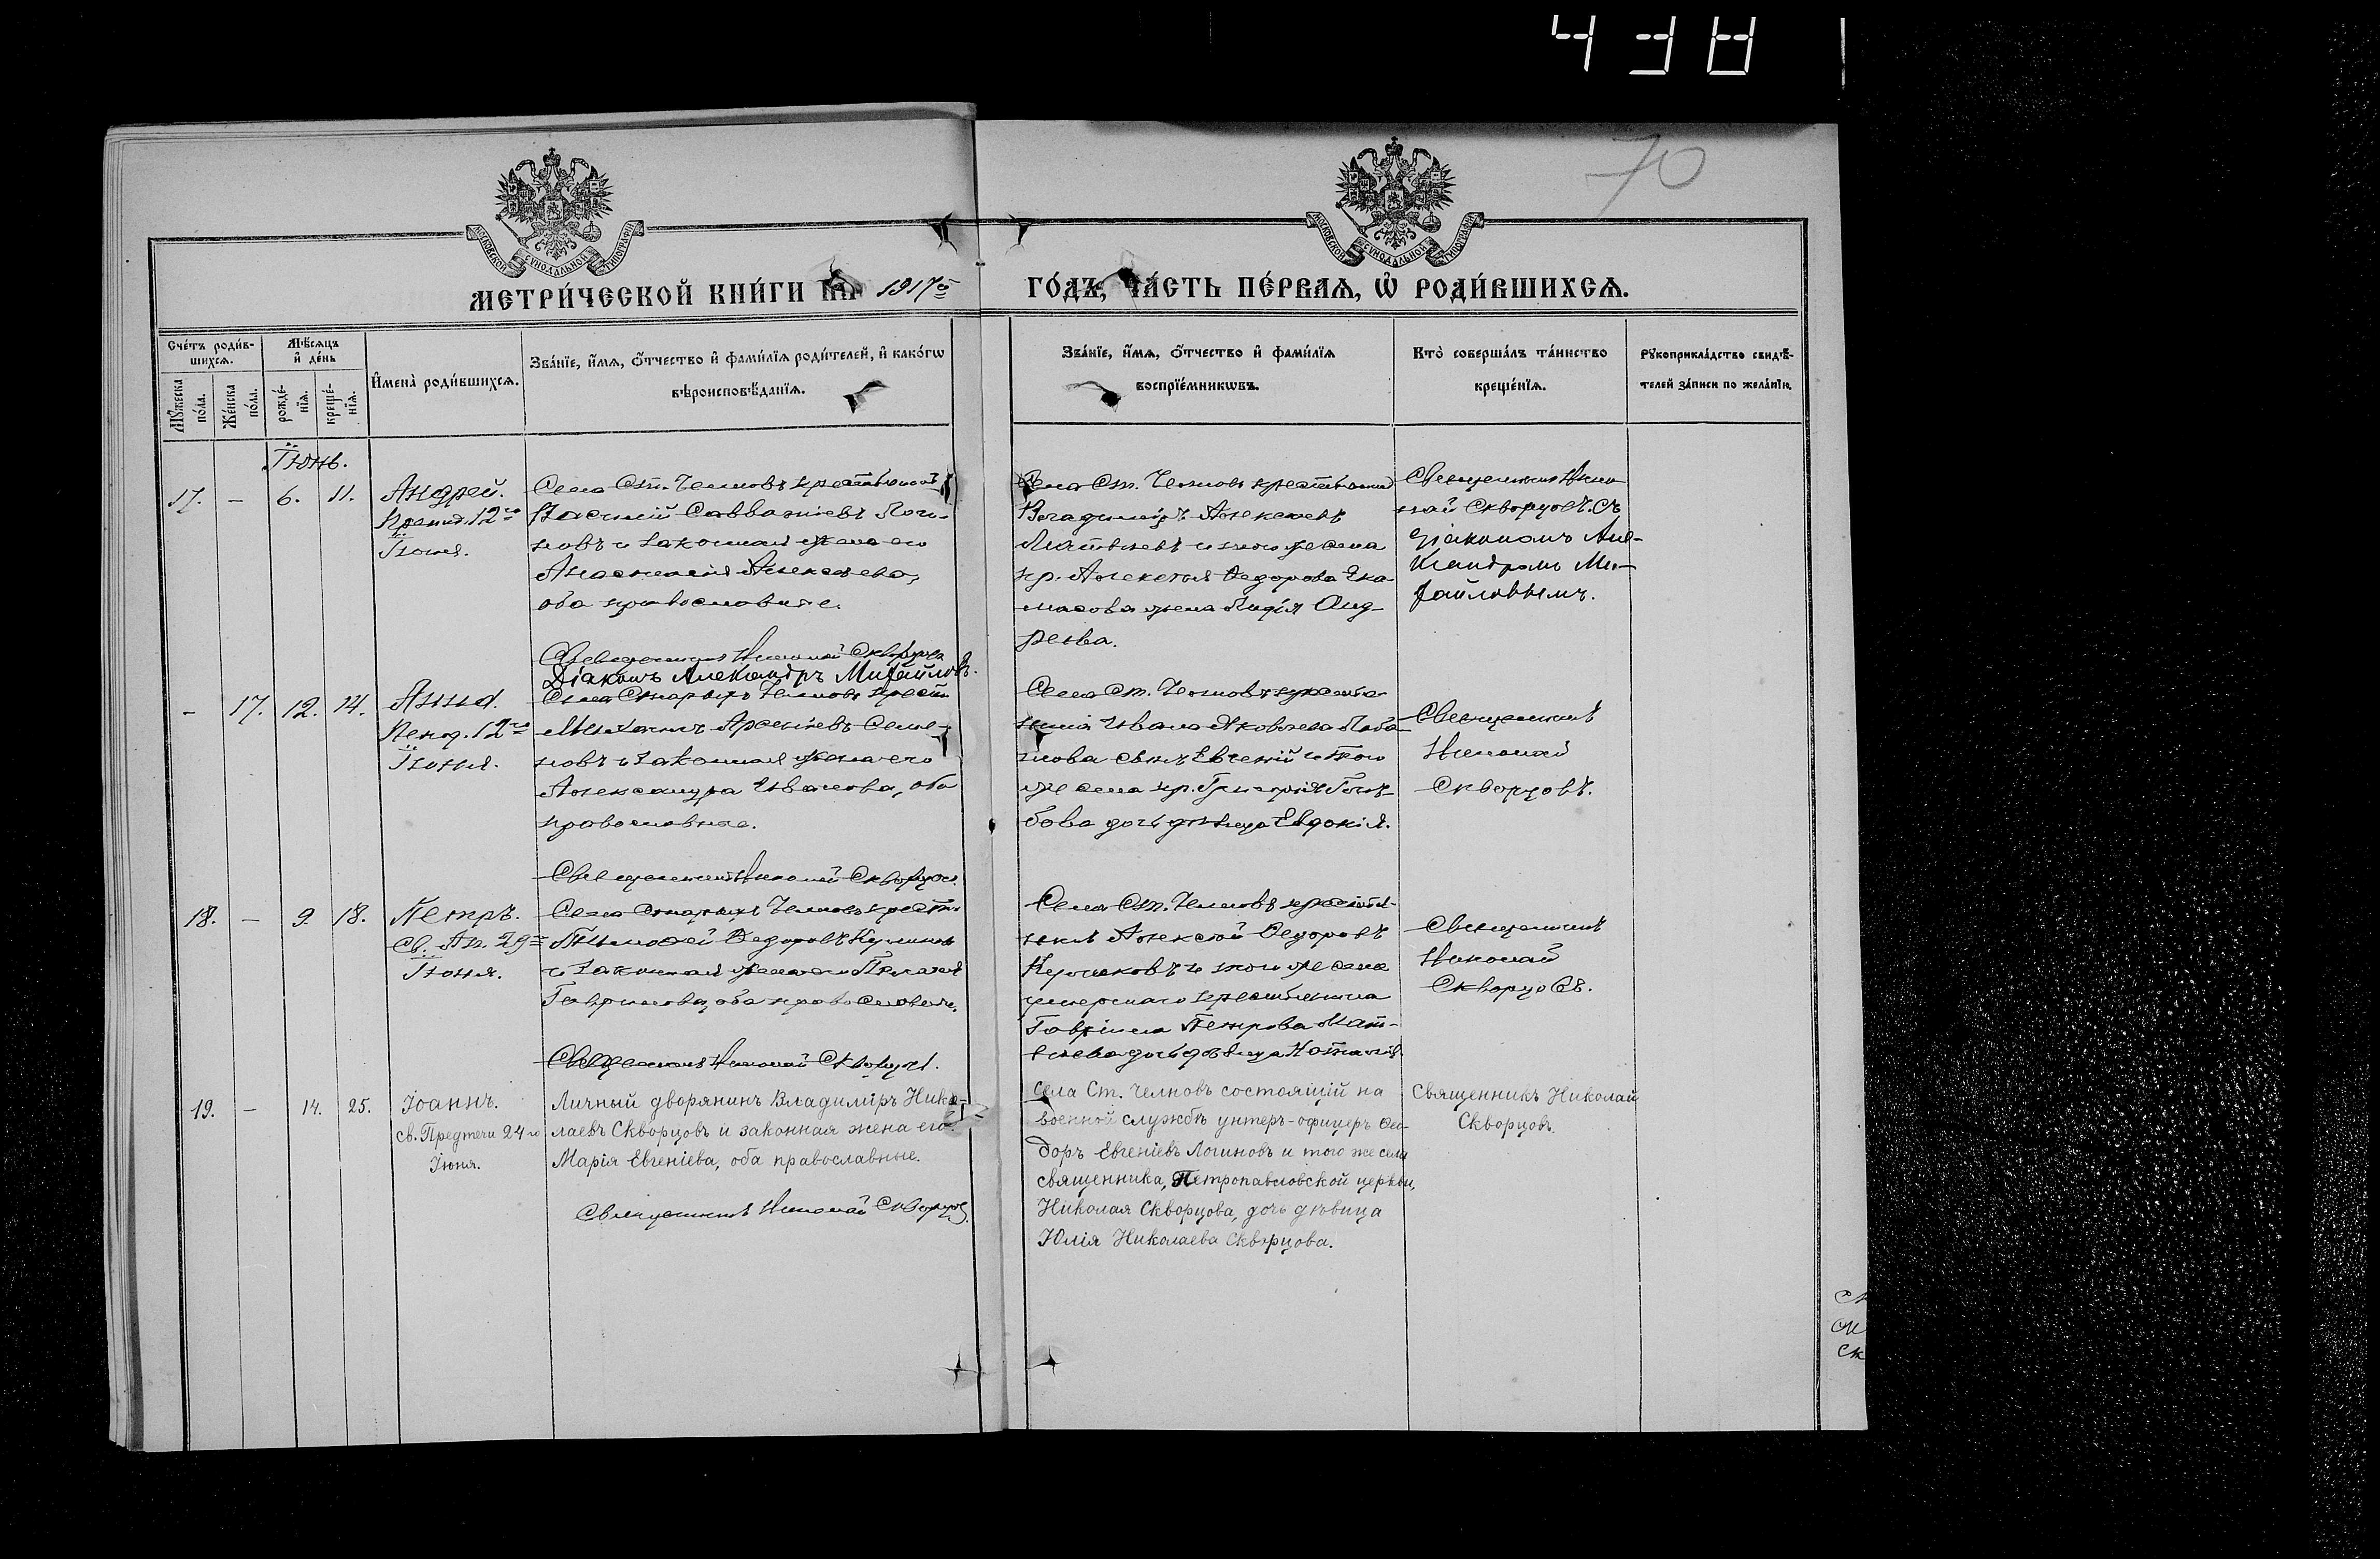 438
70
МОСКОВСКОЙ СУНОДАЛЬНОЙ ТИПОГРАФІИ
МОСКОВСКОЙ СУНОДАЛЬНОЙ ТИПОГРАФІИ
МЕТРИ́ЧЕСКОЙ КНИ́ГИ НА 1917й ГО́ДЪ, ЧА́СТЬ ПЕ́РВАѦ, Ѡ РОДИ́ВШИХСѦ.
Сче́тъ роди́в-
шихсѧ.
Мꙋ́жеска по́ла.
Же́нска по́ла.
Мѣ́сѧцъ и де́нь
рожде́-
нїѧ.
креще́-
нїѧ.
Имена̀ роди́вшихсѧ.
Зва́нїе, и́мѧ, о́тчество и фами́лїѧ роди́телей, и како́гѡ
вѣроисповѣ́данїѧ.
Зва́нїе, и́мѧ, о́тчество и фами́лїѧ
воспрїе́мникѡвъ.
Кто̀ соверша́лъ та́инство
креще́нїѧ.
Рꙋкоприкла́дство свидѣ́-
телей за́писи по жела́нїю.
Іюнь.
17. — 6. 11.
Андрей.
12го
Іюня.
Села Ст. Челновъ крестьянинъ
Василій Савватіевъ Логи-
новъ и законная жена его
Анастасія Алексѣева,
оба православные.
Священникъ Николай Скворцовъ
Діаконъ Александръ Михайловъ.
Села Ст. Челновъ крестьянинъ
Владиміръ Алексѣевъ
Матвѣевъ и того же села
кр. Алексѣя Ѳедорова
жена Лидія Анд-
реева.
Священникъ Нико-
лай Скворцовъ. Съ
діакономъ Але-
ксандромъ Ми-
хайловымъ.
— 17. 12. 14.
Анна.
12го
Іюня.
Села Старыхъ Челновъ крест.
Михаилъ Арсеніевъ Семе-
новъ и законная жена его
Александра Иванова, оба
православные.
Священникъ Николай Скворцовъ.
Села Ст. Челновъ крестья-
нина Ивана Яковлева Лоба-
нова сынъ Евгеній и того
же села кр. Григорія Глѣ-
бова дочь дѣвица Евдокія.
Священникъ
Николай
Скворцовъ.
18. — 9. 18.
Петръ.
Св. Ап. 29го
Іюня.
Села Старыхъ Челновъ крест.
Тимоѳей Ѳедоровъ
и законная жена его Пелагея
Гаврилова, оба православные.
Священникъ Николай Скворцовъ.
Села Ст. Челновъ крестья-
нинъ Алексѣй Ѳедоровъ
и того же села
умершаго крестьянина
Гавріила Петрова Мат-
вѣева дочь дѣвица Наталія.
Священникъ
Николай
Скворцовъ.
19. — 14. 25.
Іоаннъ.
св. Предтечи 24го
Іюня.
Личный дворянинъ Владиміръ Нико-
лаевъ Скворцовъ и законная жена его
Марія Евгеніева, оба православные.
Священникъ Николай Скворцовъ.
Села Ст. Челновъ состоящій на
военной службѣ унтеръ-офицеръ Ѳео-
доръ Евгеніевъ Логиновъ и того же села
священника, Петропавловской церкви,
Николая Скворцова, дочь дѣвица
Юлія Николаева Скворцова.
Священникъ Николай
Скворцовъ.